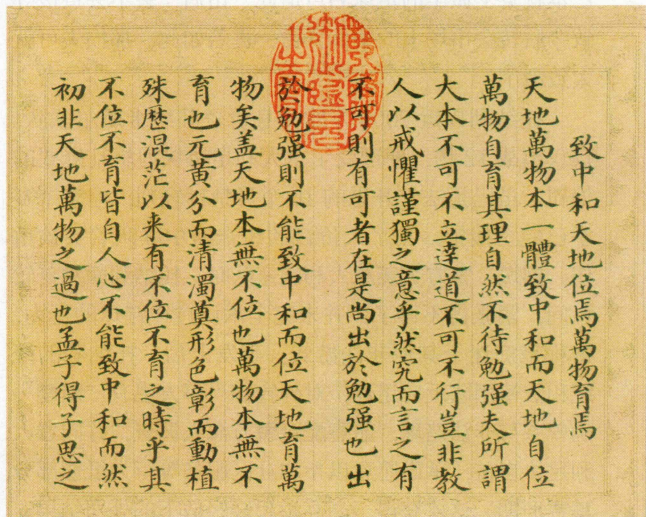 致中和天地位焉萬物育焉
天地萬物本一體致中和而天地自位
萬物自育其理自然不待勉强夫所謂
大本不可不立達道不可不行豈非教
人以戒懼謹獨之意乎然究而言之有
不可則有可者在是尚出於勉强也出
於勉强則不能致中和而位天地育萬
物矣盖天地本無不位也萬物本無不
育也元黄分而清濁奠形色彰而動植
殊歷混茫以来有不位不育之時乎其
不位不育皆自人心不能致中和而然
初非天地萬物之過也孟子得子思之